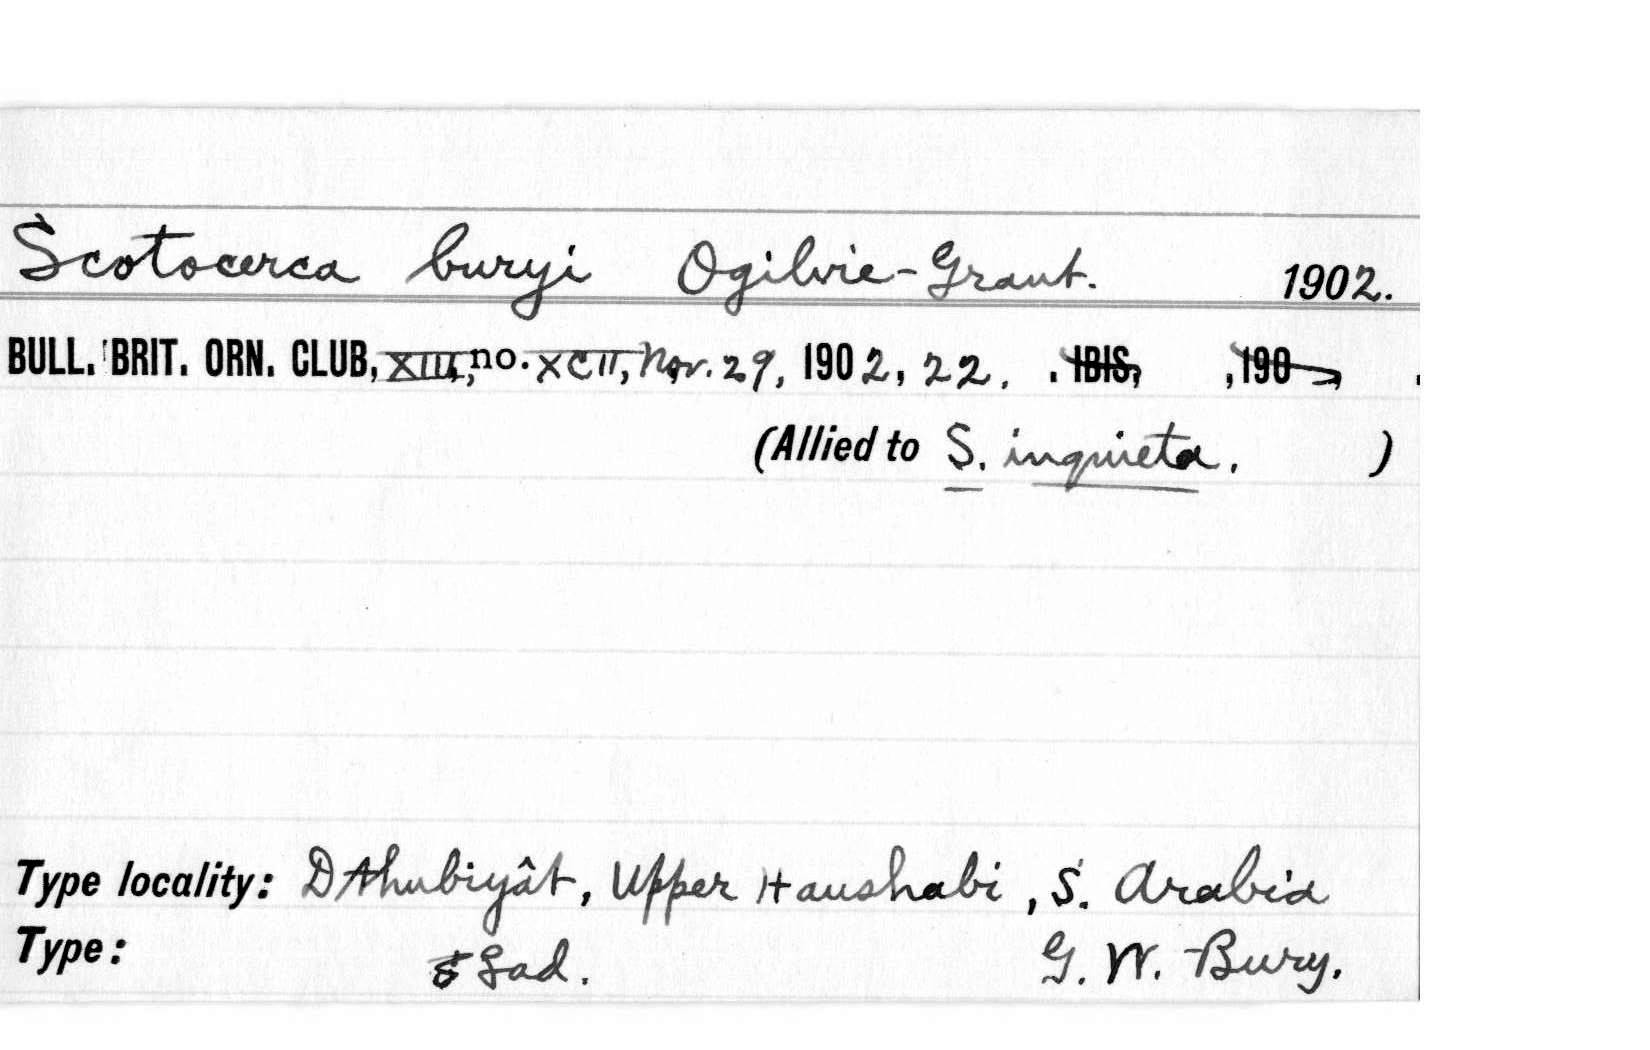 Scotocerca buryi Ogilvie-Grant. 1902.
BULL. BRIT. ORN. CLUB, XIII, no. XCII, Nov. 29, 1902, 22. . IBIS, , 190 , .
(Allied to S. inquieta. )
Type locality: Dthubiyât, Upper Haushabi, S. Arabia
Type: ad. G. W. Bury.